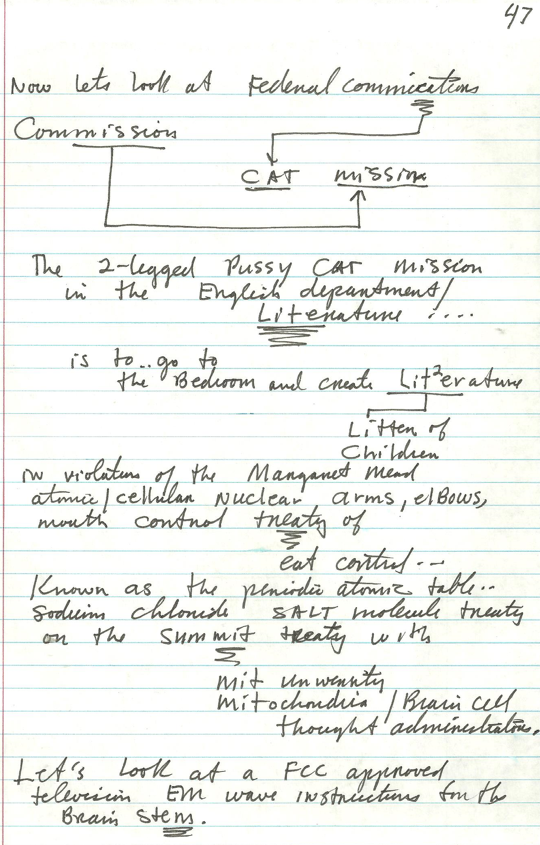 47
Now Lets Look at Federal commications
Commission
CAT mission
The 2-legged Pussy CAT mission
in the English department/
Literature :....
is to..go to
the Bedroom and create Lit²erature
Litter of
Children
in violation of the Margaret Mead
atomic/cellular nuclear arms, elBows,
mouth control treaty of
eat control...
Known as the periodic atomic table..
Sodium chloride SALT molecule treaty
on the Summit treaty with
mit unversity
mitochondria / Brain cell
thought administrators.
Let's Look at a FCC approved
television EM wave instructions for the
Brain Stem.